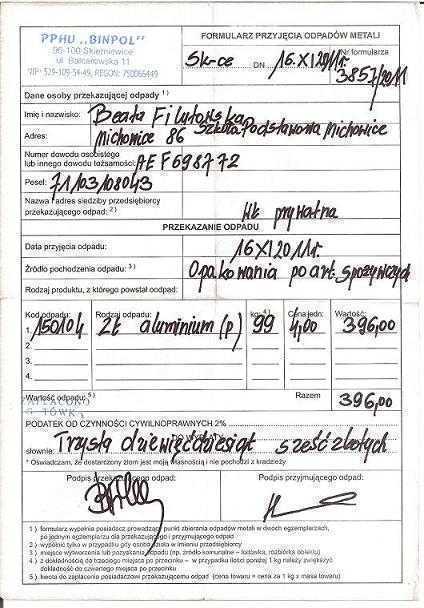 PPHU „BINPOL"
96-100 Skierniewice
ul. Batorego 11
FORMULARZ PRZYJĘCIA ODPADÓW METALI
Sk-ce DN 16.XI 2011r. Nr formularza
3857/2011
Dane osoby przekazującej odpady 1)
Imię i nazwisko: Beata
Szkoła Podstawowa Michowice
Adres: Michowice 86
Numer dowodu osobistego
lub innego dowodu tożsamości: AEF698772
Pesel: 71/03/08043
Nazwa i adres siedziby przedsiębiorcy
przekazującego odpad: 2) Wł prywatna
PRZEKAZANIE ODPADU
Data przyjęcia odpadu: 16 XI 2011r.
Źródło pochodzenia odpadu: 3) Opakowania po art. spożywczych
Rodzaj produktu, z którego powstał odpad:
Kod odpadu: Rodzaj odpadu: kg: 4) Cena jedn: Wartość:
1. 150104 Zł aluminium (p) 99 4,00 396,00
2.
3.
4.
Wartość odpadu: 5) Razem 396,00
PODATEK OD CZYNNOŚCI CYWILNOPRAWNYCH 2%
słownie: Trzysta dziewięćdziesiąt sześć złotych
* Oświadczam, że dostarczony złom jest moją własnością i nie pochodzi z kradzieży
Podpis przekazującego odpad: Podpis przyjmującego odpad:
1 ). formularz wypełnia posiadacz prowadzący punkt zbierania odpadów metali w dwóch egzemplarzach,
po jednym egzemplarzu dla przekazującego i przyjmującego odpady
2 ). wypełnić tylko w przypadku gdy osoba działa w imieniu przedsiębiorcy
3 ). miejsce wytworzenia lub pozyskania odpadu (np. źródło komunalne – łazienka, rozbiórka obiektu)
4 ). z dokładnością do trzeciego miejsca po przecinku – w przypadku ilości poniżej 1 kg należy zwiększyć
dokładność do kolejnego miejsca po przecinku
5 ). kwota do zapłacenia posiadaczowi przekazującemu odpad (cena towaru = cena za 1 kg x masa towaru)